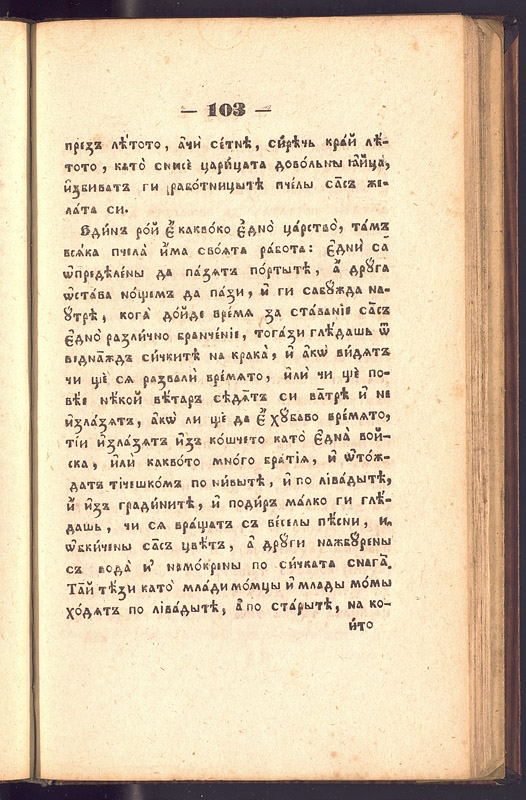 — 103 —
презъ лѣ́тото, а҆чѝ се́тнѣ, си́рѣчь кра́й лѣ́-
тото, като̀ снисѐ цари́цата дово́льны ꙗ҆йца̀,
и҆збиватъ ги рабо́тницытѣ пчелы са́съ же-
ла́та си.
Є҆ди́нъ ро́й є҆̀ какво́ко є҆дно̀ ца́рство̀, та́мъ
вся́ка пчела̀ и҆́ма своята ра́бота: є҆дни́ са̀
ѡ҆предѣле́ны да па́зятъ по́ртытѣ, а҆̀ дрꙋ́га
ѡ҆ста́ва но́щемъ да па́зи, и҆ ги сабꙋ́жда на-
ꙋтрѣ, кога̀ до́йде вре́мя за ста́ванїе са́съ
є҆дно̀ разли́чно бранче́нїе, тога́зи глѣ́дашь ѿ
веднаждъ си́чките на крака̀, и҆ а҆кѡ̀ ви́дятъ
чи щѐ ся развалѝ вре́мято, и҆лѝ чи щѐ по-
вѣ́е нѣ́кой вѣ́таръ сѣдя́тъ си ва́трѣ и҆ не
и҆зла́зятъ, а҆кѡ̀ ли щѐ да є҆̀ хꙋ́баво вре́мято,
тїи и҆зла́зятъ и҆зъ ко́шчето като̀ є҆дна̀ вой-
ска, и҆лѝ какво́то мно́го бра́тїя, и҆ ѡ҆то́ж-
датъ тїчешко́мъ по ни́вытѣ, и҆ по лїва́дытѣ,
и҆̀ и҆зъ гради́нитѣ, и҆ поди́ръ ма́лко ги глѣ́-
дашь, чи ся вра́щатъ съ ве́селы пѣ́сни, и
ѡ҆бки́чены са́съ цвѣ́тъ, а҆ дрꙋги нажбꙋ́рены
съ вода̀ и҆̀ намо́крены по си́чката снага̀.
Та́й тѣ́зи като̀ мла́ди мо́мцы и҆ млады мо́мы
хо́дятъ по лїва́дытѣ, а҆ по ста́рытѣ, на ко-
и҆то